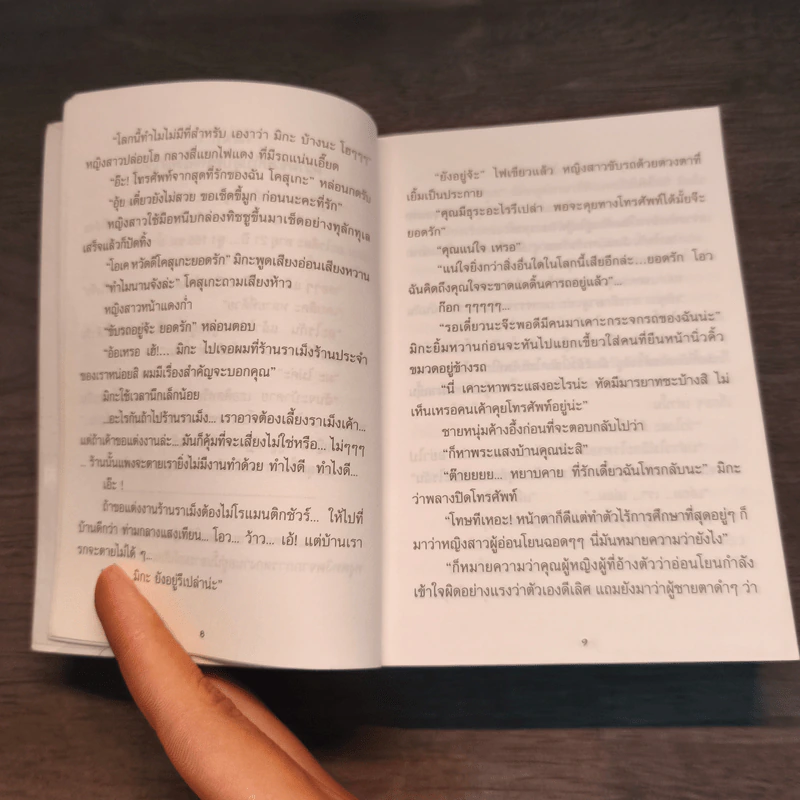 "โลกนี้ทำไมไม่มีที่สำหรับ เองาว่า มิกะ บ้างนะ โฮๆๆๆ"
หญิงสาวปล่อยโฮ กลางสี่แยกไฟแดง ที่มีรถแน่นเอี๊ยด
"อ๊ะ! โทรศัพท์จากสุดที่รักของฉัน โคสุเกะ" หล่อนกดรับ
"อุ้ย เดี๋ยวยังไม่สวย ขอเช็ดขี้มูก ก่อนนะคะที่รัก"
หญิงสาวใช้มือหนีบกล่องทิชชูขึ้นมาเช็ดอย่างทุลักทุเล
เสร็จแล้วก็ปัดทิ้ง
"โอเค หวัดดีโคสุเกะยอดรัก" มิกะพูดเสียงอ่อนเสียงหวาน
"ทำไมนานจังล่ะ" โคสุเกะถามเสียงห้าว
หญิงสาวหน้าแดงก่ำ
"ขับรถอยู่จ้ะ ยอดรัก" หล่อนตอบ
"อ้อเหรอ เฮ้!... มิกะ ไปเจอผมที่ร้านราเม็งร้านประจำ
ของเราหน่อยสิ ผมมีเรื่องสำคัญจะบอกคุณ"
มิกะใช้เวลานึกเล็กน้อย
...อะไรกันถ้าไปร้านราเม็ง... เราอาจต้องเลี้ยงราเม็งเค้า...
แต่ถ้าเค้าขอแต่งงานล่ะ... มันก็คุ้มที่จะเสี่ยงไม่ใช่หรือ... ไม่ๆๆๆ
... ร้านนั้นแพงจะตายเรายิ่งไม่มีงานทำด้วย ทำไงดี ทำไงดี...
เอ๊ะ !
ถ้าขอแต่งงานร้านราเม็งต้องไม่โรแมนติกชัวร์... ให้ไปที่
บ้านดีกว่า ท่ามกลางแสงเทียน... โอว... ว้าว... เอ้! แต่บ้านเรา
รกจะตายไม่ได้ ๆ...
มิกะ ยังอยู่รึเปล่าน่ะ"
8
"ยังอยู่จ้ะ" ไฟเขียวแล้ว หญิงสาวขับรถด้วยดวงตาที่
เยิ้มเป็นประกาย
"คุณมีธุระอะไรรึเปล่า พอจะคุยทางโทรศัพท์ได้มั้ยจ๊ะ
ยอดรัก"
"คุณแน่ใจ เหรอ"
"แน่ใจยิ่งกว่าสิ่งอื่นใดในโลกนี้เสียอีกล่ะ...ยอดรัก โอว
ฉันคิดถึงคุณใจจะขาดแดดิ้นคารถอยู่แล้ว..."
ก๊อก ๆๆๆๆๆ...
"รอเดี๋ยวนะจ๊ะพอดีมีคนมาเคาะกระจกรถของฉันน่ะ"
มิกะยิ้มหวานก่อนจะหันไปแยกเขี้ยวใส่คนที่ยืนหน้านิ่วคิ้ว
ขมวดอยู่ข้างรถ
"นี่ เคาะหาพระแสงอะไรน่ะ หัดมีมารยาทซะบ้างสิ ไม่
เห็นเหรอคนเค้าคุยโทรศัพท์อยู่น่ะ"
ชายหนุ่มค้างอึ้งก่อนที่จะตอบกลับไปว่า
"ก็หาพระแสงบ้านคุณน่ะสิ"
"ต๊ายยยย... หยาบคาย ที่รักเดี๋ยวฉันโทรกลับนะ" มิกะ
ว่าพลางปิดโทรศัพท์
"โทษทีเหอะ! หน้าตาก็ดีแต่ทำตัวไร้การศึกษาที่สุดอยู่ๆ ก็
มาว่าหญิงสาวผู้อ่อนโยนฉอดๆๆ นี่มันหมายความว่ายังไง"
"ก็หมายความว่าคุณผู้หญิงผู้ที่อ้างตัวว่าอ่อนโยนกำลัง
เข้าใจผิดอย่างแรงว่าตัวเองดีเลิศ แถมยังมาว่าผู้ชายตาดำๆ ว่า
9